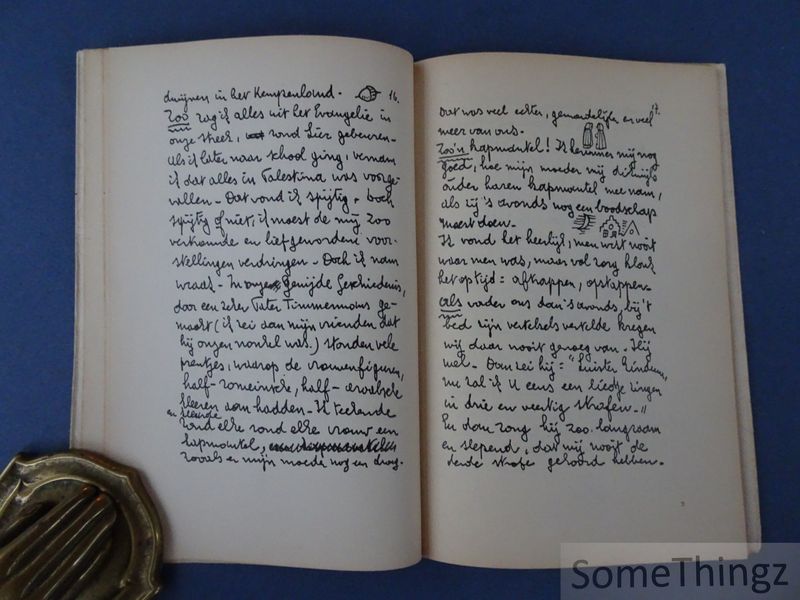 duijnen in het Kempenland - 16.
Zoo zag ik alles uit het Evangelie in
onze streek, rond Lier gebeuren -
Als ik later naar school ging, vernam
ik dat alles in Palestina was voorge-
vallen - Dat vond ik spijtig, doch
spijtig of niet, ik moest de mij zoo
vertrouwde en liefgewordene voor-
stellingen verdringen - Doch ik nam
wraak - In onze gewijde Geschiedenis,
door een zeker Pater Timmermans ge-
maakt (ik zei aan mijn vrienden dat
hij onzen nonkel was.) stonden vele
prentjes, waarop de vrouwenfiguren,
half-romeinsche, half-arabische
kleeren aan hadden - Ik teekende
en kleurde
rond elke rond elke vrouw een
kapmantel,
zooals er mijn moeder nog een droeg.
17.
Dat was veel echter, gemoedelijker en veel
meer van ons -
Zoo'n kapmantel! Ik herinner mij nog
goed, hoe mijn moeder mij dikwijls
onder haren kapmantel mee nam,
als zij 's avonds nog een boodschap
moest doen -
Ik vond het heerlijk, men wist nooit
waar men was, maar vol zorg klonk
het op tijd: afstappen, opstappen -
Als vader ons dan 's avonds, bij 't
bed zijn vertelsels vertelde kregen
wij daar nooit genoeg van - Hij
wel - Dan zei hij: "Luister kinderen,
nu zal ik U eens een liedje zingen
in drie en veertig strofen -"
En dan zong hij zoo langzaam
en slepend, dat wij nooit de
derde strofe gehoord hebben -
SomeThingz